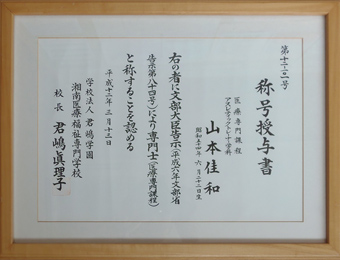 第十二-二〇一号
称号授与書
医療専門課程
アスレティックトレーナー学科
山本佳和
昭和五十四年六月二十二日生
右の者に文部大臣告示(平成六年文部省
告示第八十四号)により専門士(医療専門課程)
と称することを認める
平成十二年三月十三日
学校法人 君嶋学園
湘南医療福祉専門学校
校長 君嶋眞理子